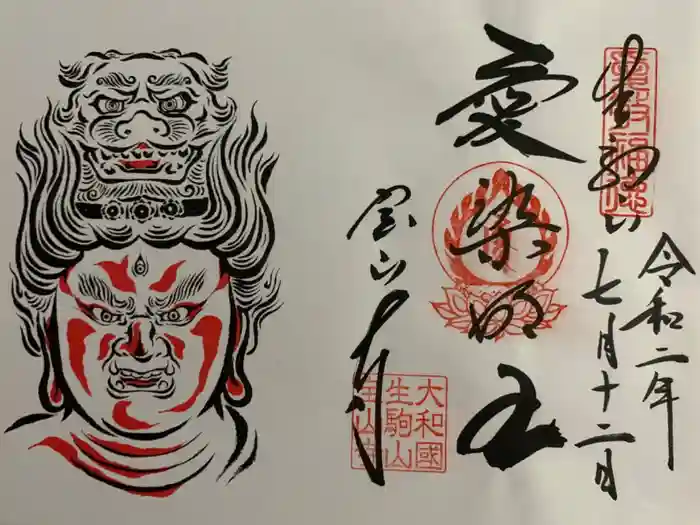 生駒山
令和二年
七月十二日
愛染明王
宝山寺
大和國
生駒山
宝山寺